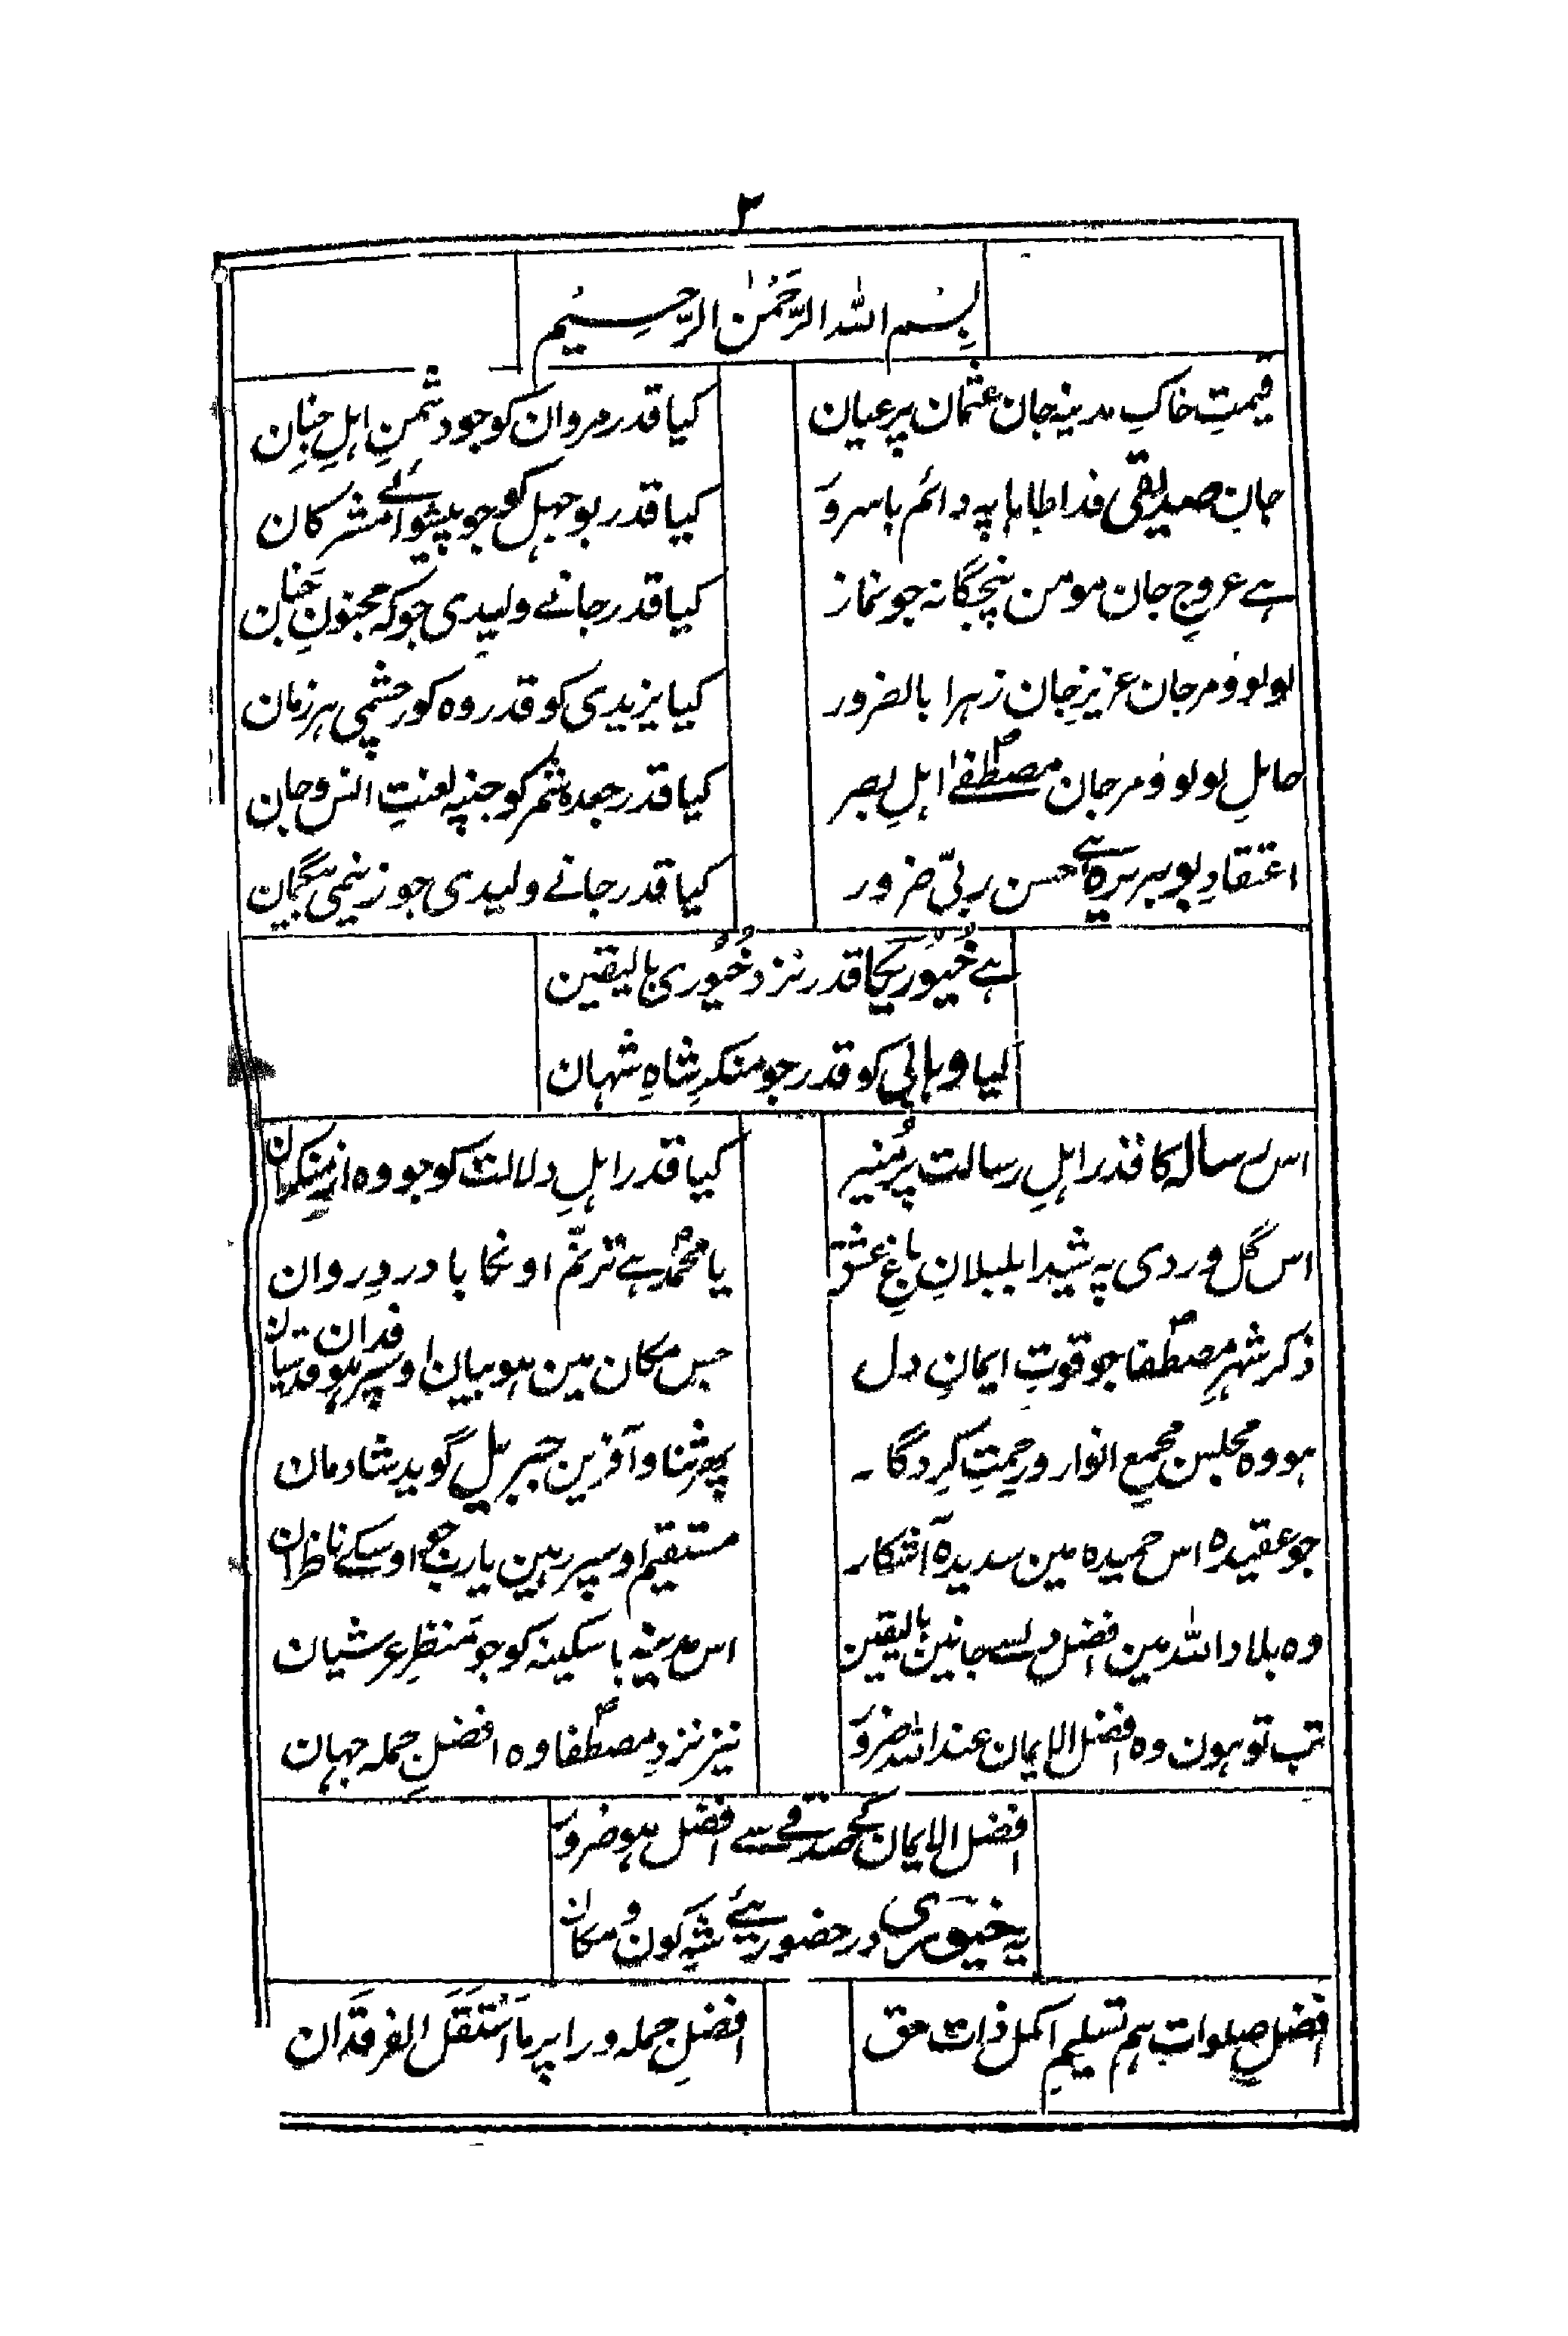 ۲
بِسْمِ اللہ الرَّحْمٰنِ الرَّحِیْمِ
قیمتِ خاکِ مدینہ جان عثمان پر عیان
کیا قدر مروان کو جو دشمنِ اہلِ جنان
جانِ صدیقی فدا طابا پہ دائم باسرور
کیا قدر بوجہل کو جو پیشوائے مشرکان
ہے عروجِ جان مومن پنجگانہ جو نماز
کیا قدر جانے ولیدی جو کہ مجنونِ جنان
لولو و مرجان عزیزِ جان زہرا بالضرور
کیا یزیدی کو قدر وہ کور چشمی ہر زمان
حاملِ لولو و مرجان مصطفےٰؐ اہلِ بصر
کیا قدر جعدہ شمر کو جنپہ لعنتِ انس و جان
اعتقادِ بوہریرہ سے حسن ربّی ضرور
کیا قدر جانے ولیدی جو زنیمی بیگمان
ہے خُیوُر یکا قدر نزد خُیوُری بالیقین
کیا وہابی کو قدر جو منکرِ شاہِ شہان
اس رسالہ کا قدر اہلِ رسالت پر مُنیر
کیا قدر اہلِ دلالت کو جو وہ از منکران
اس گل وردی پہ شیدا بلبلانِ باغِ عشق
یا محمدؐ ہے ترنّم اونکا با دردِ روان
ذکر شہرِ مصطفاؐ جو قوتِ ایمانِ دل
جس مکان مین ہو بیان اوسپر ہو فدان قدسیان
ہو وہ مجلس مجمعِ انوار و رحمتِ کردگا۔
پھر ثنا و آفرین جبریل گوید شادمان
جو عقیدہ اس حمیدہ مین سدیدہ آشکار
مستقیم اوسپر رہین یارب جو اوسکے ناظران
وہ بلاد اللہ مین افضل جانین بالیقین
اس مدینہ باسکینہ کو جو منظرِ عرشیان
تب تو ہون وہ افضل الایمان عند اللہ ضرور
نیز نزدِ مصطفاؐ وہ افضلِ جملہ جہان
افضل الایمان کے صدقے سے افضل ہو ضرور
یہ خیوری در حضوریئے شہِ کون و مکان
افضل صلوات ہم تسلیمِ اکمل ذات حق
افضلِ جملہ ورا پر ما اسْتَقَلَّ الفرقدان